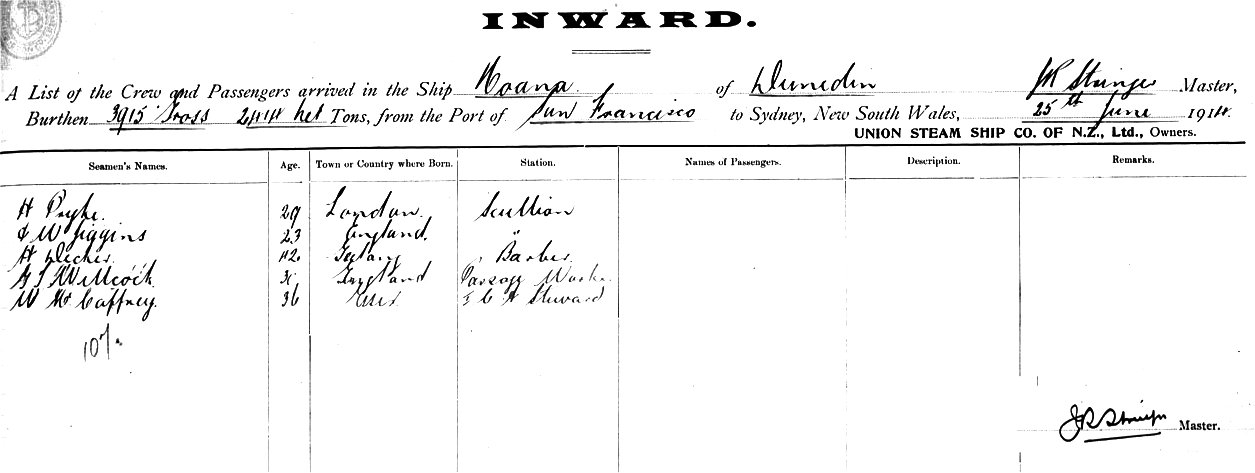 INWARD.
A List of the Crew and Passengers arrived in the Ship Moana of Dunedin JR Stringer Master,
Burthen 3915 Gross 2414 net Tons, from the Port of San Francisco to Sydney, New South Wales, 25th June 1914.
UNION STEAM SHIP CO. OF N.Z., Ltd., Owners.
Seamen's Names. Age. Town or Country where Born. Station. Names of Passengers. Description. Remarks.
H 29 London. Scullion
W Jiggins 23 England. "
H 42. Barber
Willcock England Passage Worker
W McCaffrey. 36 Steward
107.
Master.